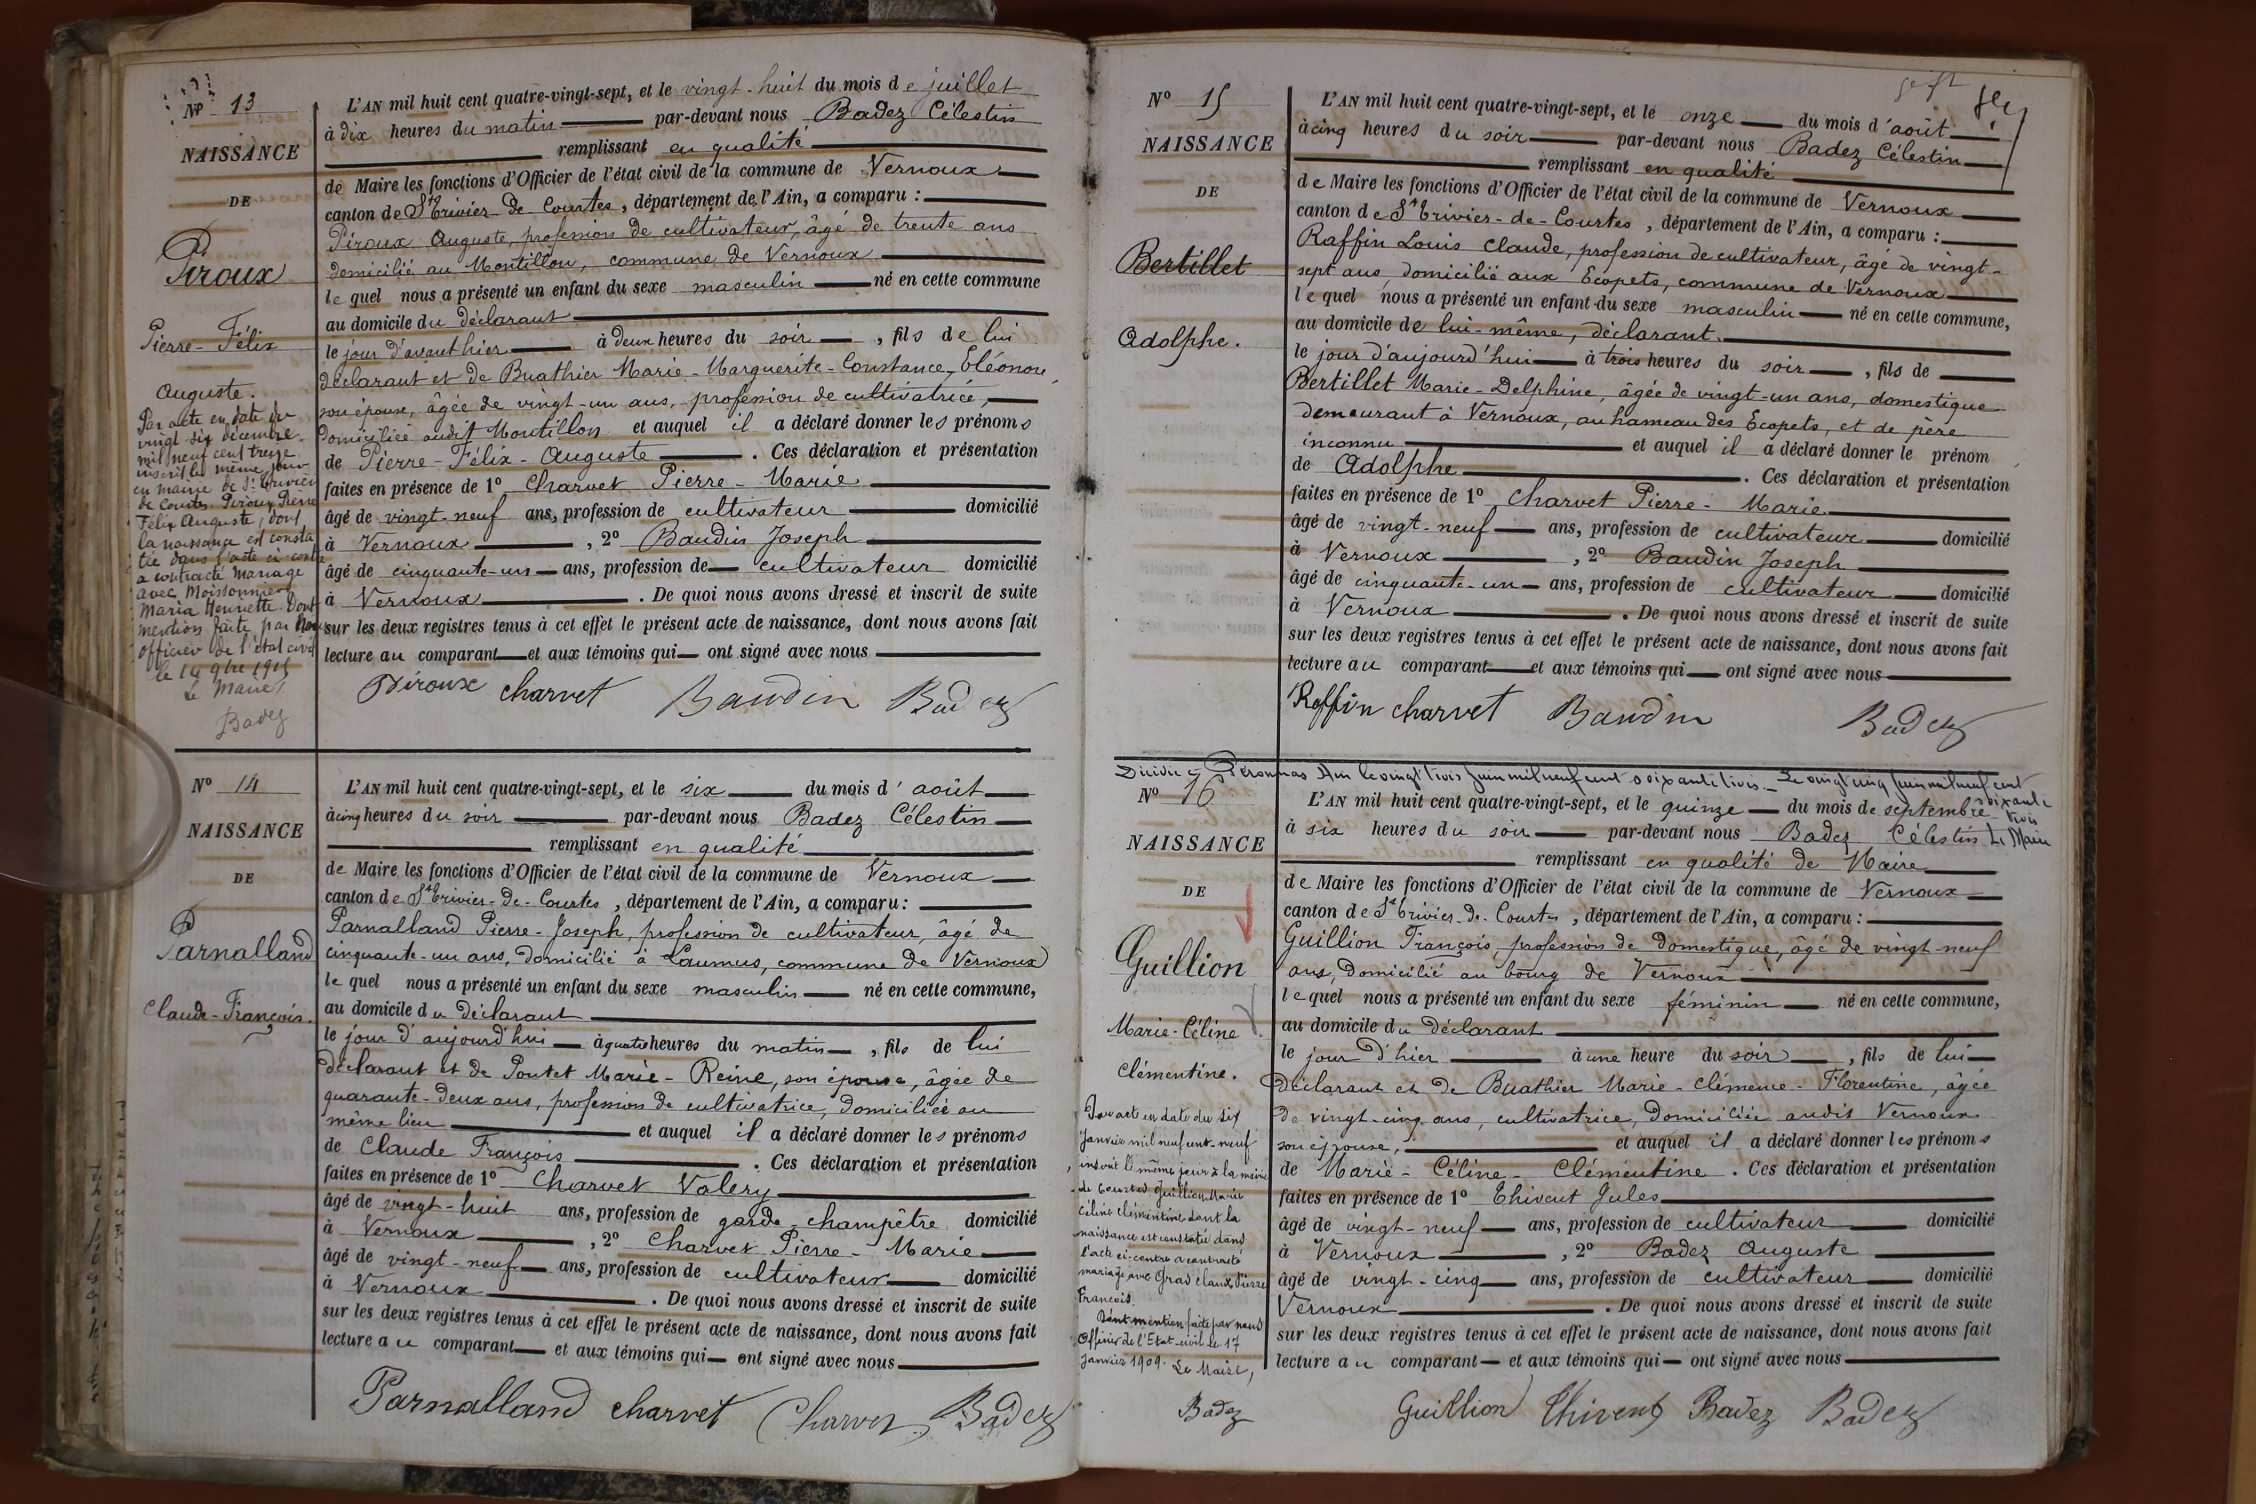 Nº 13
NAISSANCE
DE
Piroux
Pierre-Félix
Auguste.
Par acte en date du
vingt six décembre
mil neuf cent treize
inscrit le même jour
en mairie de St Trivier
de Courtes Piroux Pierre
Félix Auguste, dont
la naissance est consta
tée dans l'acte ci-contre
a contracté mariage
avec Moissonnier
Maria Henriette. Dont
mention faite par Nous
officier de l'état civil
le 14 9bre 1915
Le Maire
Badez
L'AN mil huit cent quatre-vingt-sept, et le vingt-huit du mois de juillet
à dix heures du matin par-devant nous Badez Célestin
remplissant en qualité
de Maire les fonctions d'Officier de l'état civil de la commune de Vernoux
canton de St Trivier-de-Courtes, département de l'Ain, a comparu :
Piroux Auguste, profession de cultivateur, âgé de trente ans
domicilié au Montillon, commune de Vernoux
lequel nous a présenté un enfant du sexe masculin né en cette commune
au domicile du déclarant
le jour d'avant hier à deux heures du soir, fils de lui
déclarant et de Buathier Marie-Marguerite-Constance-Eléonore
son épouse, âgée de vingt-un ans, profession de cultivatrice,
domiciliée audit Montillon et auquel il a déclaré donner les prénoms
de Pierre-Félix-Auguste. Ces déclaration et présentation
faites en présence de 1º Charvet Pierre-Marie
âgé de vingt-neuf ans, profession de cultivateur domicilié
à Vernoux, 2º Baudin Joseph
âgé de cinquante-un ans, profession de cultivateur domicilié
à Vernoux. De quoi nous avons dressé et inscrit de suite
sur les deux registres tenus à cet effet le présent acte de naissance, dont nous avons fait
lecture au comparant et aux témoins qui ont signé avec nous
Piroux Charvet Baudin Badez
Nº 14
NAISSANCE
DE
Parnalland
Claude-François.
L'AN mil huit cent quatre-vingt-sept, et le six du mois d'août
à cinq heures du soir par-devant nous Badez Célestin
remplissant en qualité
de Maire les fonctions d'Officier de l'état civil de la commune de Vernoux
canton de St Trivier-de-Courtes, département de l'Ain, a comparu :
Parnalland Pierre-Joseph, profession de cultivateur, âgé de
cinquante-un ans, domicilié à Laumus, commune de Vernoux
lequel nous a présenté un enfant du sexe masculin né en cette commune,
au domicile du déclarant
le jour d'aujourd'hui à quatre heures du matin, fils de lui
déclarant et de Poutet Marie-Reine, son épouse, âgée de
quarante-deux ans, profession de cultivatrice, domiciliée au
même lieu et auquel il a déclaré donner les prénoms
de Claude François. Ces déclaration et présentation
faites en présence de 1º Charvet Valery
âgé de vingt-huit ans, profession de garde-champêtre domicilié
à Vernoux, 2º Charvet Pierre-Marie
âgé de vingt-neuf ans, profession de cultivateur domicilié
à Vernoux. De quoi nous avons dressé et inscrit de suite
sur les deux registres tenus à cet effet le présent acte de naissance, dont nous avons fait
lecture au comparant et aux témoins qui ont signé avec nous
Parnalland Charvet Charvet Badez
Nº 15
NAISSANCE
DE
Bertillet
Adolphe.
L'AN mil huit cent quatre-vingt-sept, et le onze du mois d'août
à cinq heures du soir par-devant nous Badez Célestin
remplissant en qualité
de Maire les fonctions d'Officier de l'état civil de la commune de Vernoux
canton de St Trivier-de-Courtes, département de l'Ain, a comparu :
Raffin Louis Claude, profession de cultivateur, âgé de vingt-
sept ans, domicilié aux Ecopets, commune de Vernoux
lequel nous a présenté un enfant du sexe masculin né en cette commune,
au domicile de lui-même, déclarant.
le jour d'aujourd'hui à trois heures du soir, fils de
Bertillet Marie-Delphine, âgée de vingt-un ans, domestique
demeurant à Vernoux, au hameau des Ecopets, et de père
inconnu et auquel il a déclaré donner le prénom
de Adolphe. Ces déclaration et présentation
faites en présence de 1º Charvet Pierre-Marie
âgé de vingt-neuf ans, profession de cultivateur domicilié
à Vernoux, 2º Baudin Joseph
âgé de cinquante-un ans, profession de cultivateur domicilié
à Vernoux. De quoi nous avons dressé et inscrit de suite
sur les deux registres tenus à cet effet le présent acte de naissance, dont nous avons fait
lecture au comparant et aux témoins qui ont signé avec nous
Raffin Charvet Baudin Badez
Décédée à Péronnas Ain le vingt trois juin mil neuf cent soixante trois. Le vingt cinq juin mil neuf cent
soixante
trois
Le Maire
Nº 16
NAISSANCE
DE
Guillion
Marie-Céline
Clémentine.
Par acte en date du six
Janvier mil neuf cent-neuf
inscrit le même jour à la mairie
de Courtes Guillion Marie
Céline Clémentine dont la
naissance est constatée dans
l'acte ci-contre a contracté
mariage avec Gras Claude Pierre
François.
Dont mention faite par nous
Officier de l'Etat-civil le 17
Janvier 1909. Le Maire,
Badez
L'AN mil huit cent quatre-vingt-sept, et le quinze du mois de septembre
à six heures du soir par-devant nous Badez Célestin
remplissant en qualité de Maire
de Maire les fonctions d'Officier de l'état civil de la commune de Vernoux
canton de St Trivier-de-Courtes, département de l'Ain, a comparu :
Guillion François, profession de domestique, âgé de vingt-neuf
ans, domicilié au bourg de Vernoux
lequel nous a présenté un enfant du sexe féminin né en cette commune,
au domicile du déclarant
le jour d'hier à une heure du soir, fils de lui
déclarant et de Buathier Marie-Clémence-Florentine, âgée
de vingt-cinq ans, cultivatrice, domiciliée audit Vernoux
son épouse, et auquel il a déclaré donner les prénoms
de Marie-Céline-Clémentine. Ces déclaration et présentation
faites en présence de 1º Thivent Jules
âgé de vingt-neuf ans, profession de cultivateur domicilié
à Vernoux, 2º Badez Auguste
âgé de vingt-cinq ans, profession de cultivateur domicilié
Vernoux. De quoi nous avons dressé et inscrit de suite
sur les deux registres tenus à cet effet le présent acte de naissance, dont nous avons fait
lecture au comparant et aux témoins qui ont signé avec nous
Guillion Thivent Badez Badez